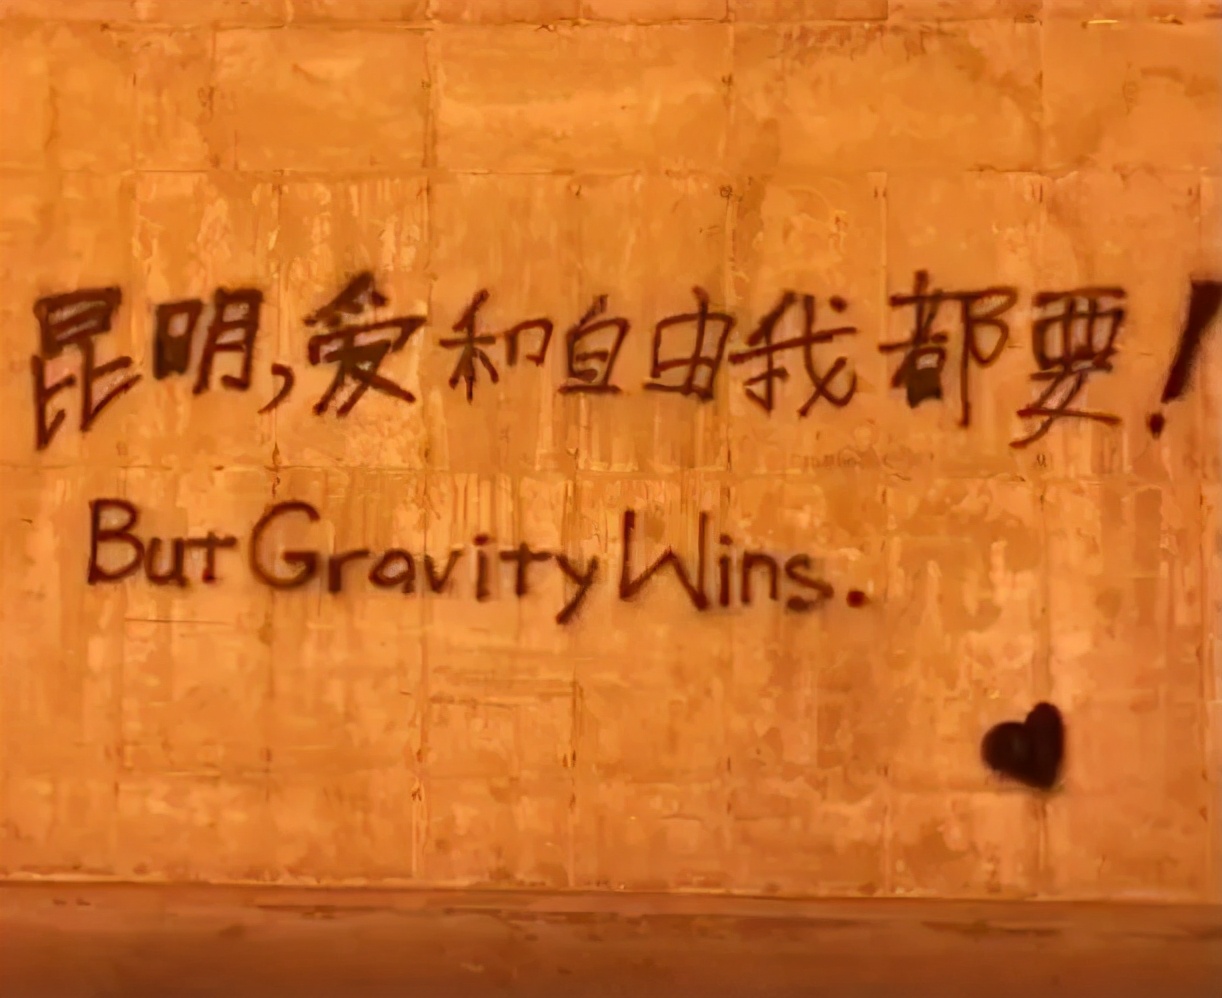 昆明,爱和自由我都要!
But Gravity Wins.